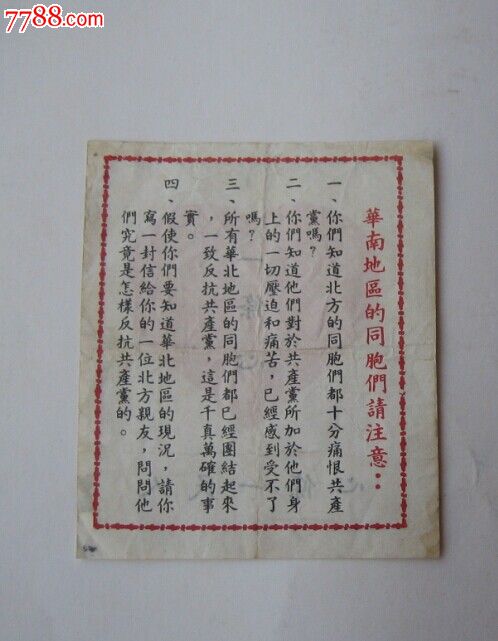 7788.com
華南地區的同胞們請注意：
一、你們知道北方的同胞們都十分痛恨共產
黨嗎？
二、你們知道他們對於共產黨所加於他們身
上的一切壓迫和痛苦，已經感到受不了
嗎？
三、所有華北地區的同胞們都已經團結起來
，一致反抗共產黨，這是千真萬確的事
實。
四、假使你們要知道華北地區的現況，請你
寫一封信給你的一位北方親友，問問他
們究竟是怎樣反抗共產黨的。